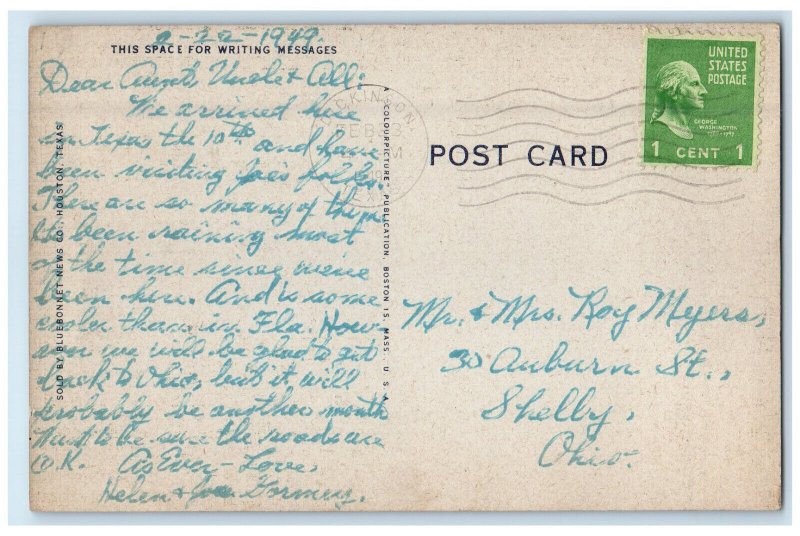 2-22-1949.
THIS SPACE FOR WRITING MESSAGES
Dear Aunt, Uncle & All:
We arrived here
in Texas the 10th and have
been visiting Joe's folks.
There are so many of them
Its been raining most
of the time since we've
been here. And is some
cooler than in Fla. How
soon we will be glad to get
back to Ohio, but it will
probably be another month
Want to be sure the roads are
O.K. As Ever - Love,
Helen & Joe Gormey.
SOLD BY BLUEBONNET NEWS CO., HOUSTON, TEXAS
A "COLOURPICTURE" PUBLICATION, BOSTON 15, MASS., U.S.A.
FEB 23
POST CARD
UNITED
STATES
POSTAGE
GEORGE
WASHINGTON
1 CENT 1
Mr. & Mrs. Roy Myers,
35 Auburn St.,
Shelby,
Ohio.